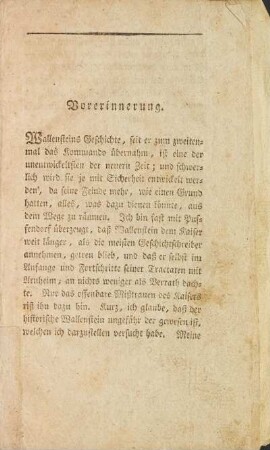 Vorerinnerung.
Wallensteins Geschichte, seit er zum zweiten-
mal das Kommando übernahm, ist eine der
unentwickeltsten der neuern Zeit; und schwer-
lich wird sie je mit Sicherheit entwickelt wer-
den, da seine Feinde mehr, wie einen Grund
hatten, alles, was dazu dienen könnte, aus
dem Wege zu räumen. Ich bin fast mit Puf-
fendorf überzeugt, daß Wallenstein dem Kaiser
weit länger, als die meisten Geschichtschreiber
annehmen, getreu blieb, und daß er selbst im
Anfange und Fortschritte seiner Tractaten mit
Arnheim, an nichts weniger als Verrath dach-
te. Nur das offenbare Mißtrauen des Kaisers
riß ihn dazu hin. Kurz, ich glaube, daß der
historische Wallenstein ungefähr der gewesen ist,
welchen ich darzustellen versucht habe. Meine